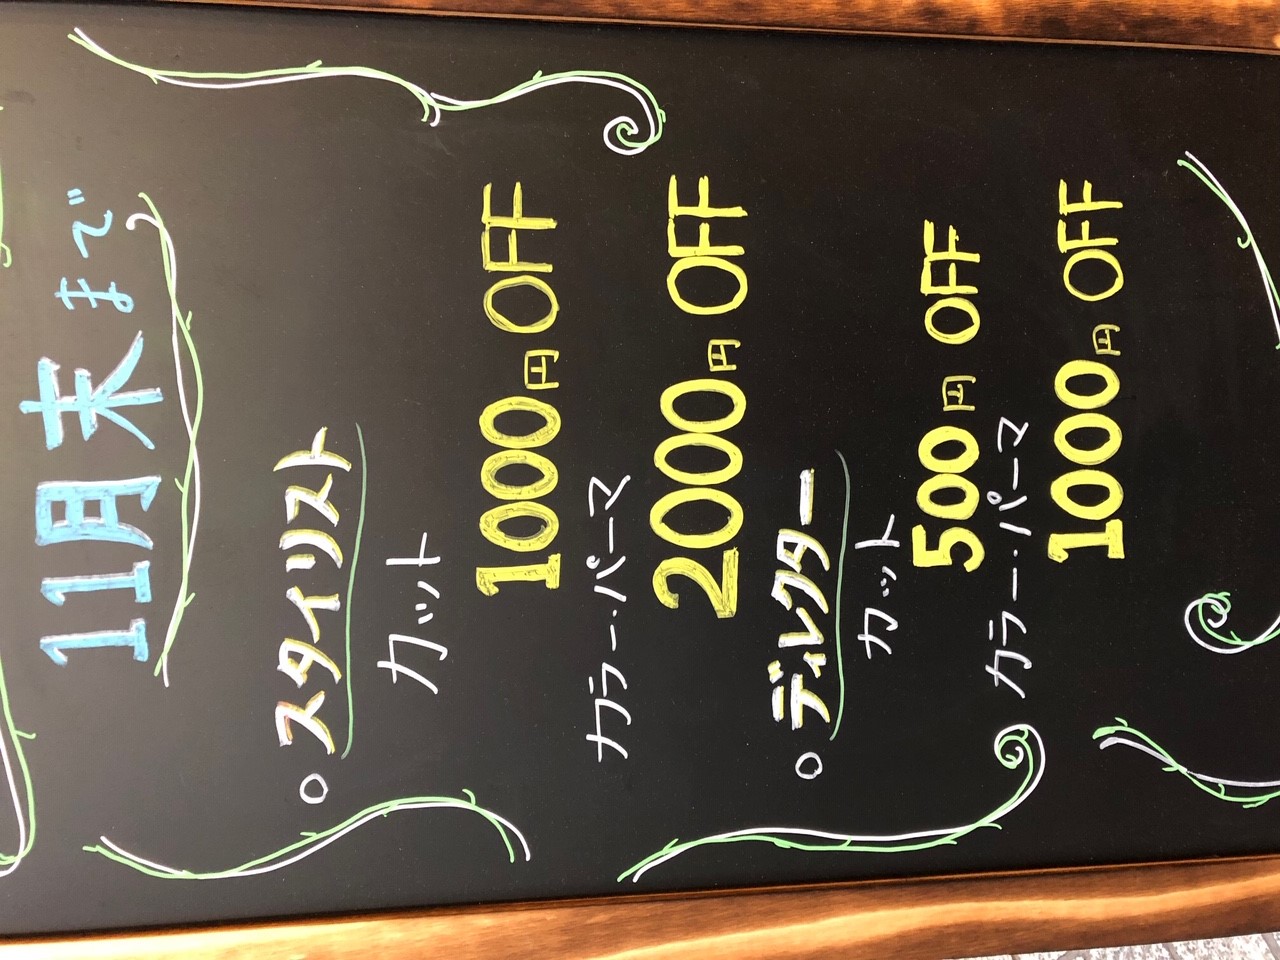 11月末まで
○スタイリスト
カット
1000円OFF
カラー・パーマ
2000円OFF
○ディレクター
カット
500円OFF
カラー・パーマ
1000円OFF